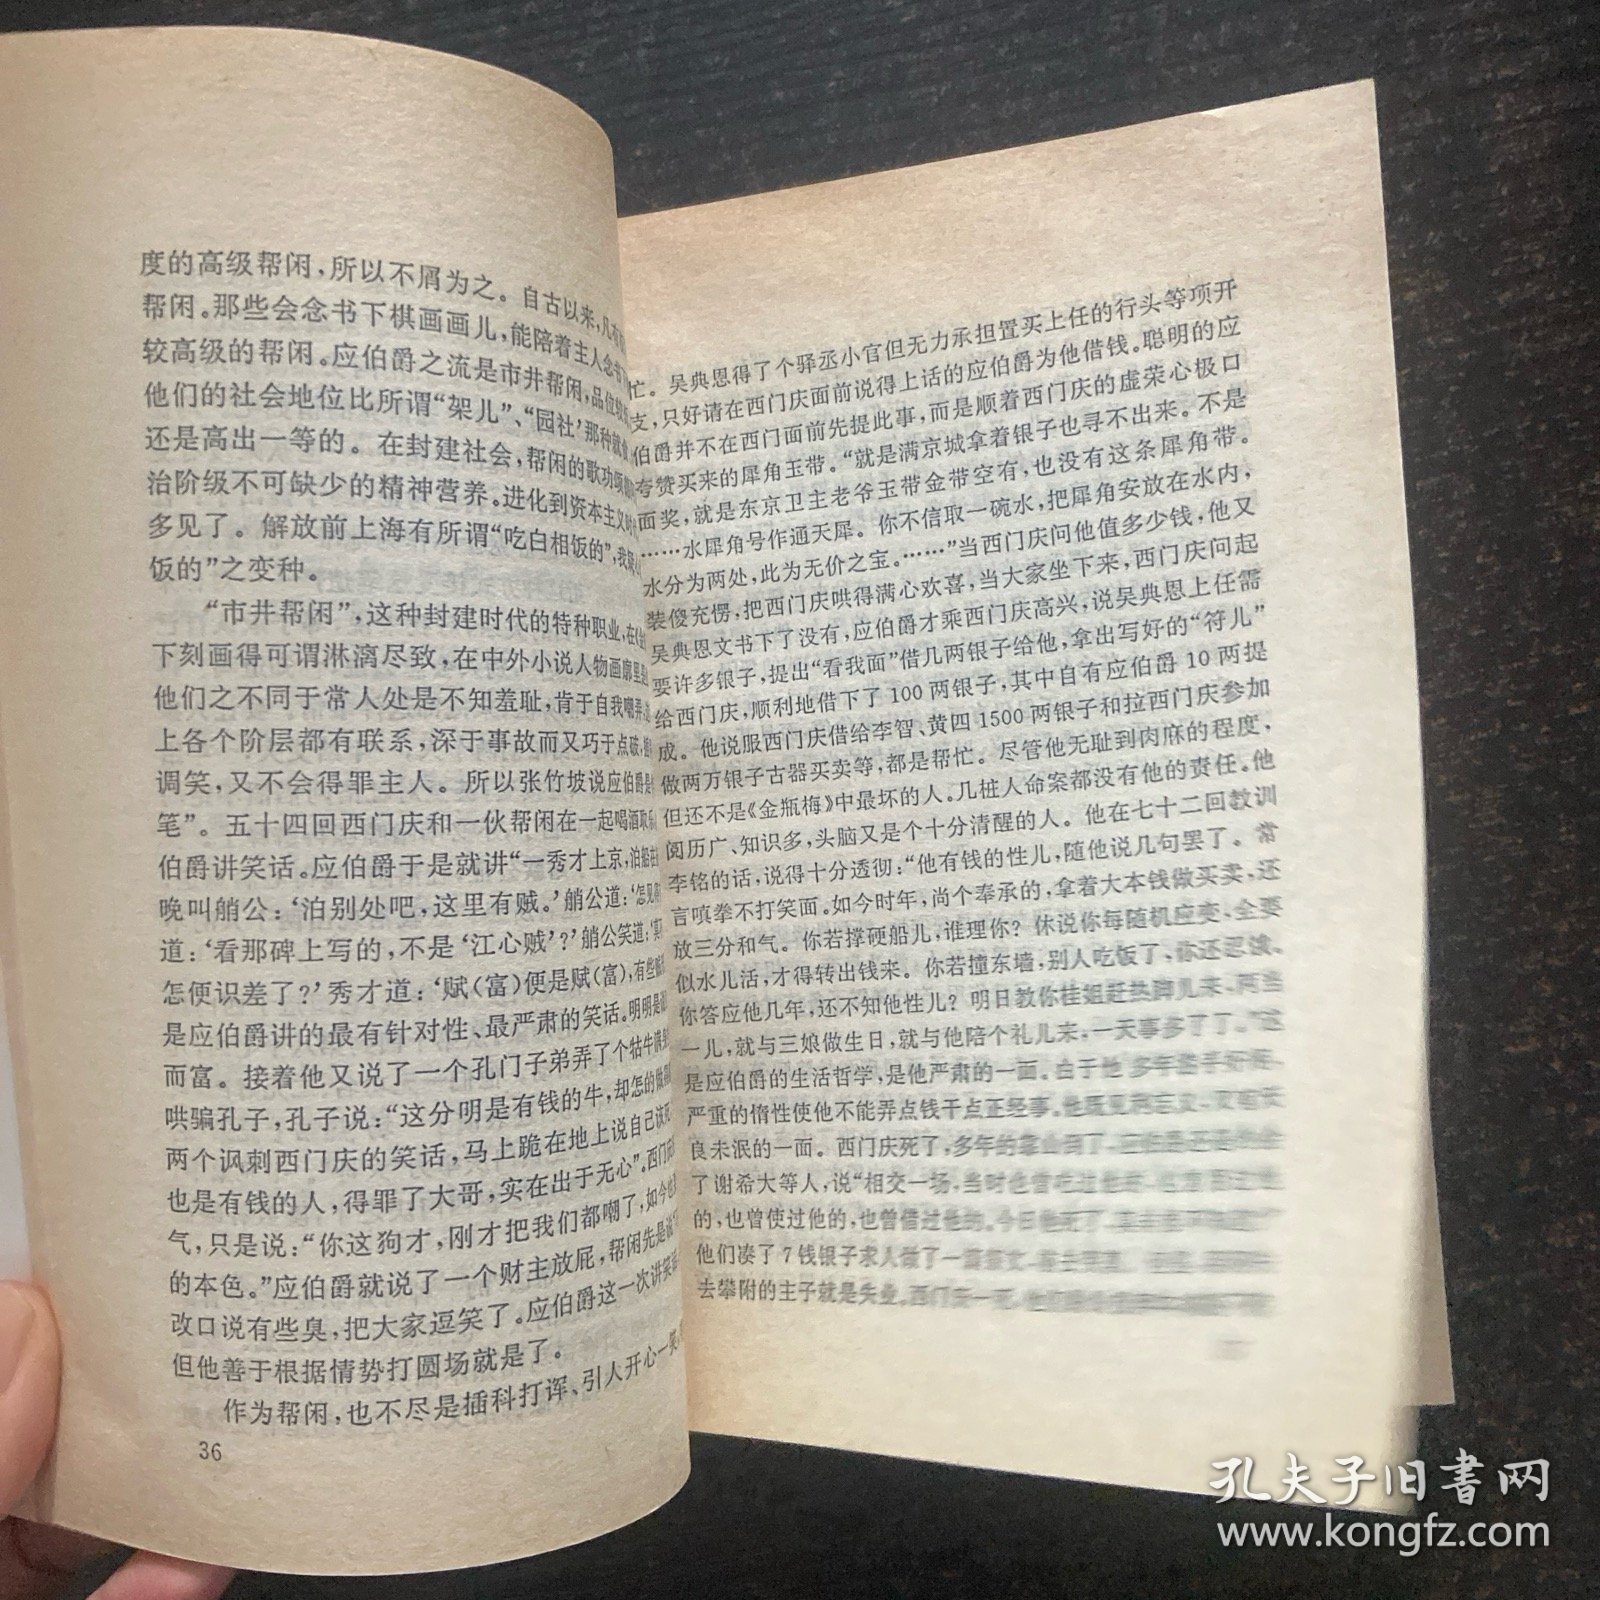 度的高级帮闲，所以不屑为之。自古以来，凡有
帮闲。那些会念书下棋画画儿，能陪着主人念书
较高级的帮闲。应伯爵之流是市井帮闲，品位较
他们的社会地位比所谓“架儿”、“园社’那种就食
还是高出一等的。在封建社会，帮闲的歌功颂
治阶级不可缺少的精神营养。进化到资本主义
多见了。解放前上海有所谓“吃白相饭的”，我
饭的”之变种。
“市井帮闲”，这种封建时代的特种职业，在
下刻画得可谓淋漓尽致，在中外小说人物画廊里
他们之不同于常人处是不知羞耻，肯于自我嘲弄
上各个阶层都有联系，深于事故而又巧于点破，
调笑，又不会得罪主人。所以张竹坡说应伯爵是
笔”。五十四回西门庆和一伙帮闲在一起喝酒取
伯爵讲笑话。应伯爵于是就讲“一秀才上京，泊船在
晚叫艄公：‘泊别处吧，这里有贼。’艄公道：‘怎见
道：‘看那碑上写的，不是‘江心贼’？’艄公笑道：
怎便识差了？’秀才道：‘赋（富）便是赋（富），有些
是应伯爵讲的最有针对性、最严肃的笑话。明明是
而富。接着他又说了一个孔门子弟弄了个牯牛满
哄骗孔子，孔子说：“这分明是有钱的牛，却怎的做
两个讽刺西门庆的笑话，马上跪在地上说自己该死
也是有钱的人，得罪了大哥，实在出于无心”。西门
气，只是说：“你这狗才，刚才把我们都嘲了，如今
的本色。”应伯爵就说了一个财主放屁，帮闲先是说
改口说有些臭，把大家逗笑了。应伯爵这一次讲笑
但他善于根据情势打圆场就是了。
作为帮闲，也不尽是插科打诨、引人开心一笑
36
忙。吴典恩得了个驿丞小官但无力承担置买上任的行头等项开
支，只好请在西门庆面前说得上话的应伯爵为他借钱。聪明的应
伯爵并不在西门面前先提此事，而是顺着西门庆的虚荣心极口
夸赞买来的犀角玉带。“就是满京城拿着银子也寻不出来。不是
面奖，就是东京卫主老爷玉带金带空有，也没有这条犀角带。
……水犀角号作通天犀。你不信取一碗水，把犀角安放在水内，
水分为两处，此为无价之宝。……”当西门庆问他值多少钱，他又
装傻充愣，把西门庆哄得满心欢喜，当大家坐下来，西门庆问起
吴典恩文书下了没有，应伯爵才乘西门庆高兴，说吴典恩上任需
要许多银子，提出“看我面”借几两银子给他，拿出写好的“符儿”
给西门庆，顺利地借下了100两银子，其中自有应伯爵10两提
成。他说服西门庆借给李智、黄四1500两银子和拉西门庆参加
做两万银子古器买卖等，都是帮忙。尽管他无耻到肉麻的程度，
但还不是《金瓶梅》中最坏的人。几桩人命案都没有他的责任。他
阅历广、知识多，头脑又是个十分清醒的人。他在七十二回教训
李铭的话，说得十分透彻：“他有钱的性儿，随他说几句罢了。常
言嗔拳不打笑面。如今时年，尚个奉承的，拿着大本钱做买卖，还
放三分和气。你若撑硬船儿，谁理你？休说你每随机应变，全要
似水儿活，才得转出钱来。你若撞东墙，别人吃饭了，你还忍饿。
你答应他几年，还不知他性儿？明日教你桂姐赶热脚儿来，两当
一儿，就与三娘做生日，就与他陪个礼儿来，一天事多了了。”这
是应伯爵的生活哲学，是他严肃的一面。由于他多年游手好闲，
严重的惰性使他不能弄点钱干点正经事。他既见利忘义，又有天
良未泯的一面。西门庆死了，多年的靠山倒了，应伯爵还
了谢希大等人，说“相交一场，当时也曾吃过他的，也曾
的，也曾使过他的，也曾借过他的。今日他死了，
他们凑了7钱银子求人做了一篇祭文，
去攀附的主子就是失业。西门庆一死，他们
孔夫子旧书网
www.kongfz.com